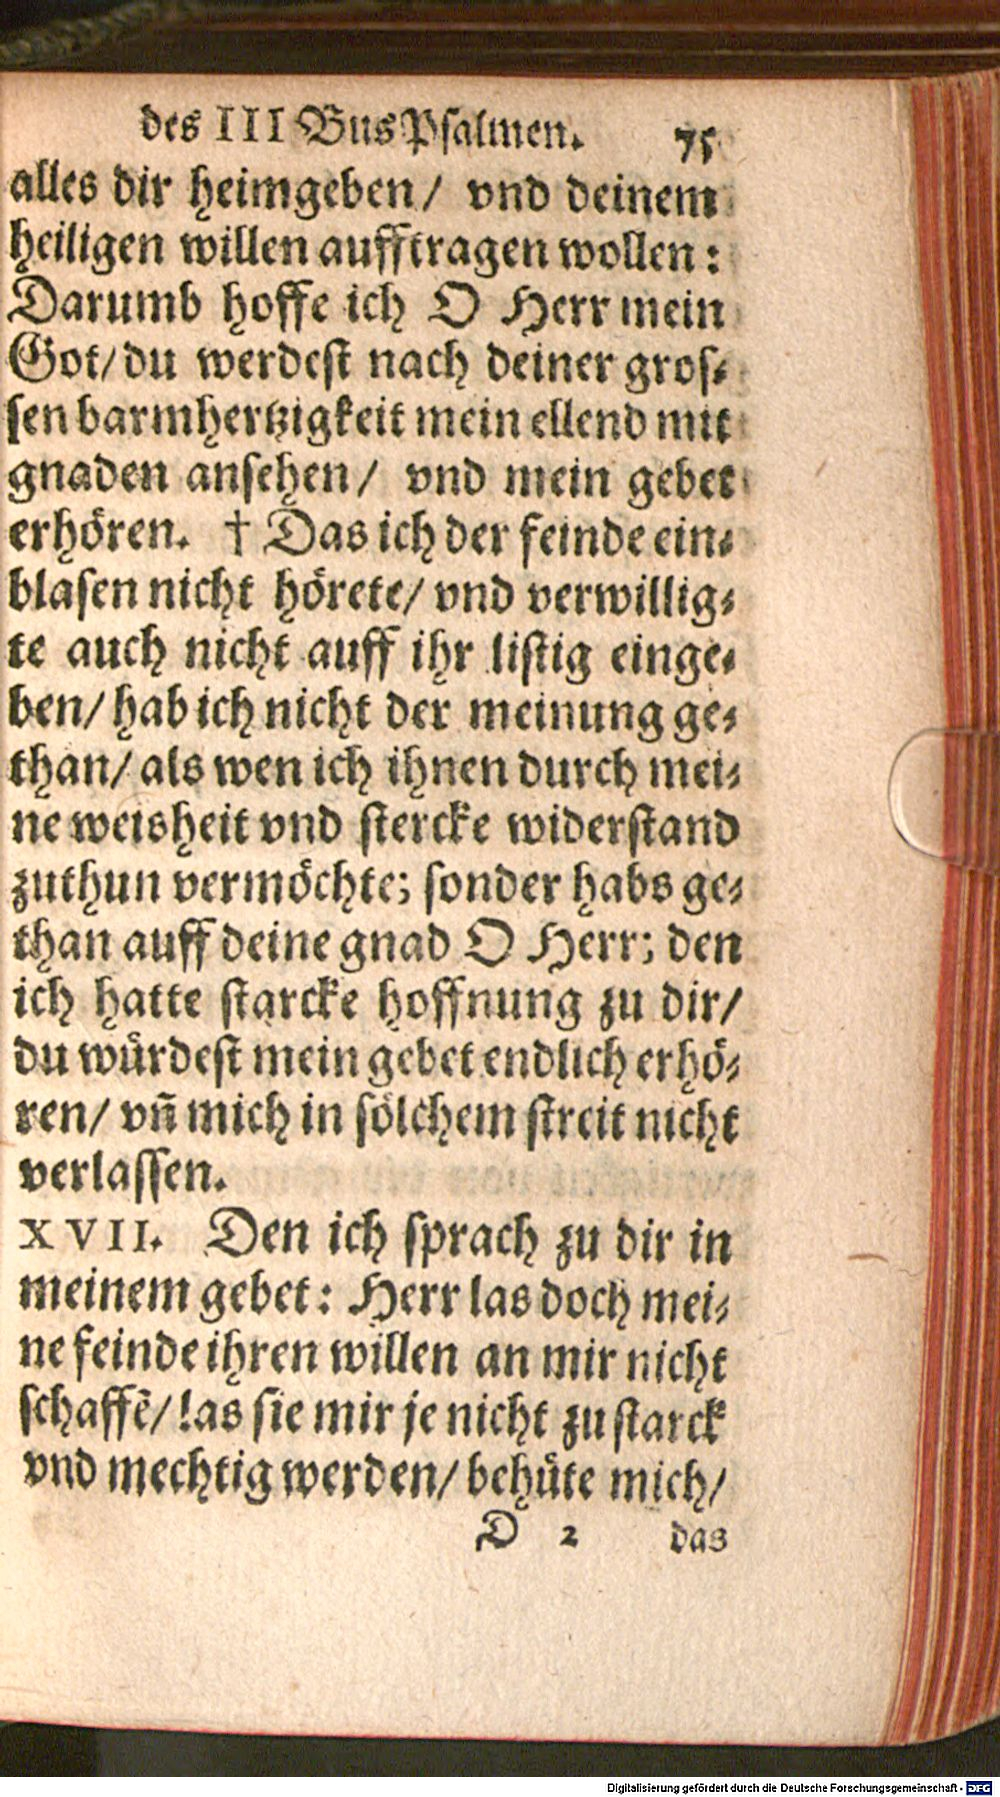 des III BusPsalmen. 75
alles dir heimgeben/ vnd deinem
heiligen willen aufftragen wollen:
Darumb hoffe ich O Herr mein
Got/ du werdest nach deiner gros⸗
sen barmhertzigkeit mein ellend mit
gnaden ansehen/ vnd mein gebet
erhören. † Das ich der feinde ein⸗
blasen nicht hörete/ vnd verwillig⸗
te auch nicht auff ihr listig einge⸗
ben/ hab ich nicht der meinung ge⸗
than/ als wen ich ihnen durch mei⸗
ne weisheit vnd stercke widerstand
zuthun vermöchte; sonder habs ge⸗
than auff deine gnad O Herr; den
ich hatte starcke hoffnung zu dir/
du würdest mein gebet endlich erhö⸗
ren/ vñ mich in sölchem streit nicht
verlassen.
XVII. Den ich sprach zu dir in
meinem gebet: Herr las doch mei⸗
ne feinde ihren willen an mir nicht
schaffē/ las sie mir je nicht zu starck
vnd mechtig werden/ behüte mich/
D 2 das
Digitalisierung gefördert durch die Deutsche Forschungsgemeinschaft - DFG